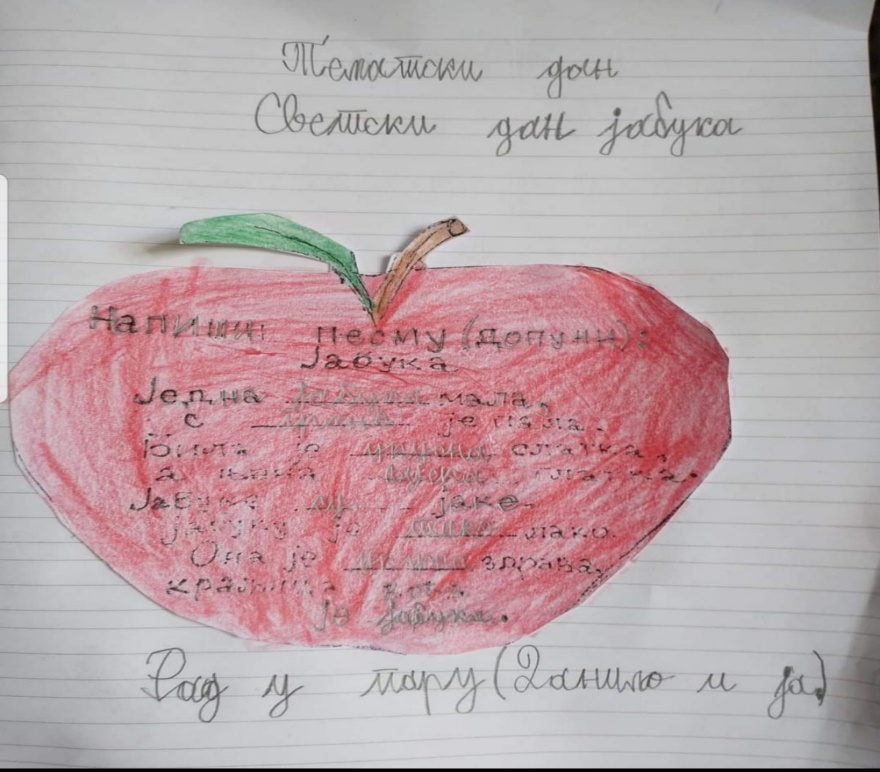 Тематски дан
Светски дан јабука
Напиши песму (допуни):
Јабука
Једна јабука мала,
с гране је пала.
Била је укусна слатка,
а њена кора глатка.
Јабуке су јаке.
јабуку је лако
Она је здрава,
је јабука.
Рад у пару (Данило и ја)